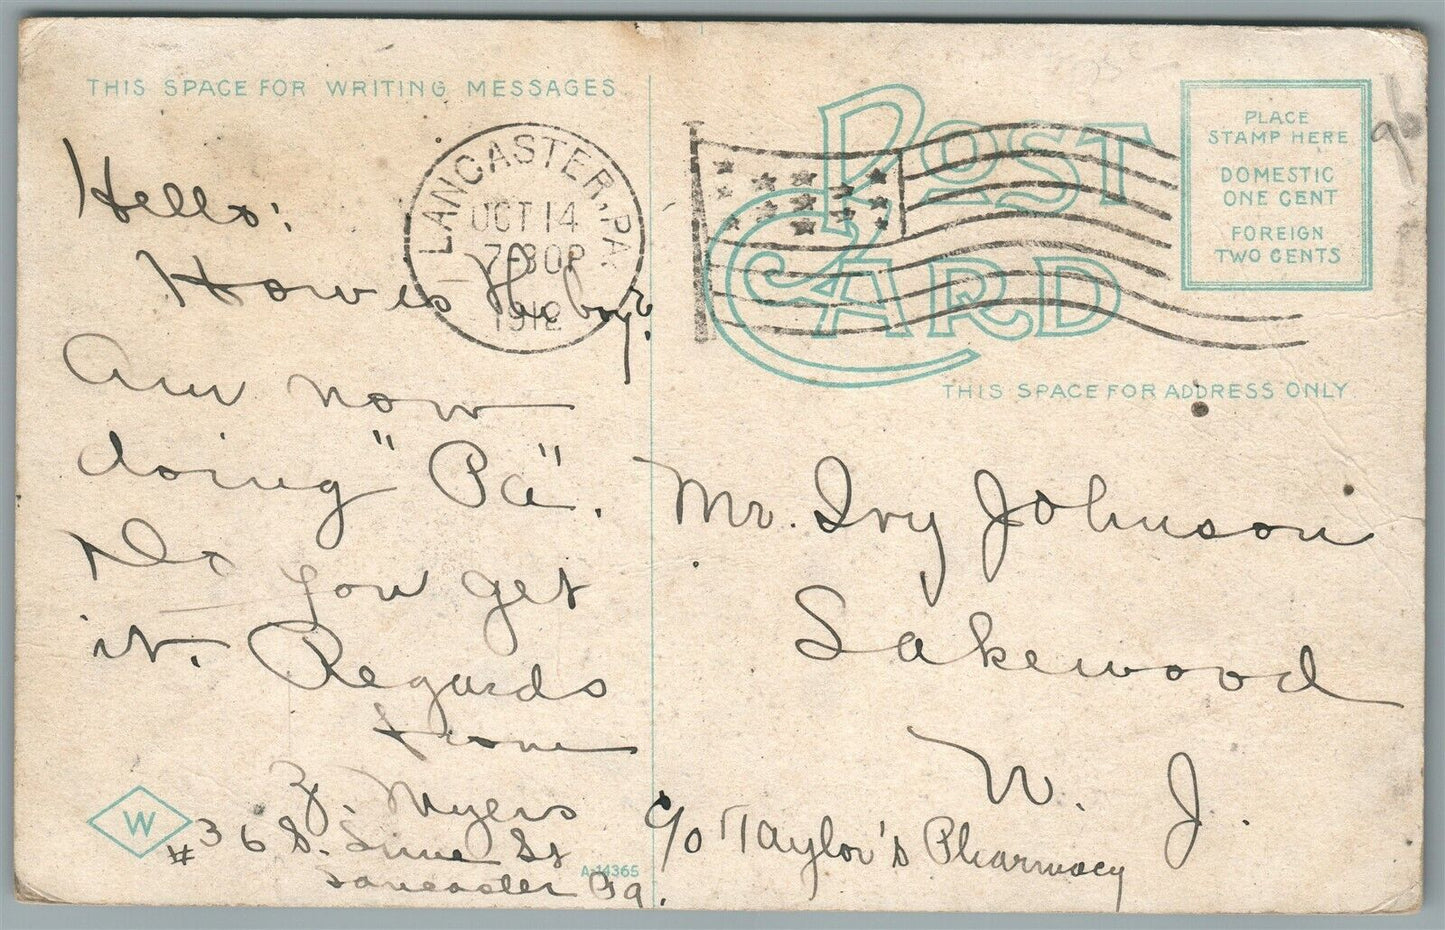 THIS SPACE FOR WRITING MESSAGES
LANCASTER, PA.
OCT 14
7-30P
1912
Hello:
How is
Am now
doing "Pa".
Do you get
it. Regards
from
Myers
#36 S. Lime St
Lancaster Pa.
W
A-14365
POST CARD
PLACE
STAMP HERE
DOMESTIC
ONE CENT
FOREIGN
TWO CENTS
THIS SPACE FOR ADDRESS ONLY
Mr. Ivy Johnson
Lakewood
N. J.
c/o Taylor's Pharmacy